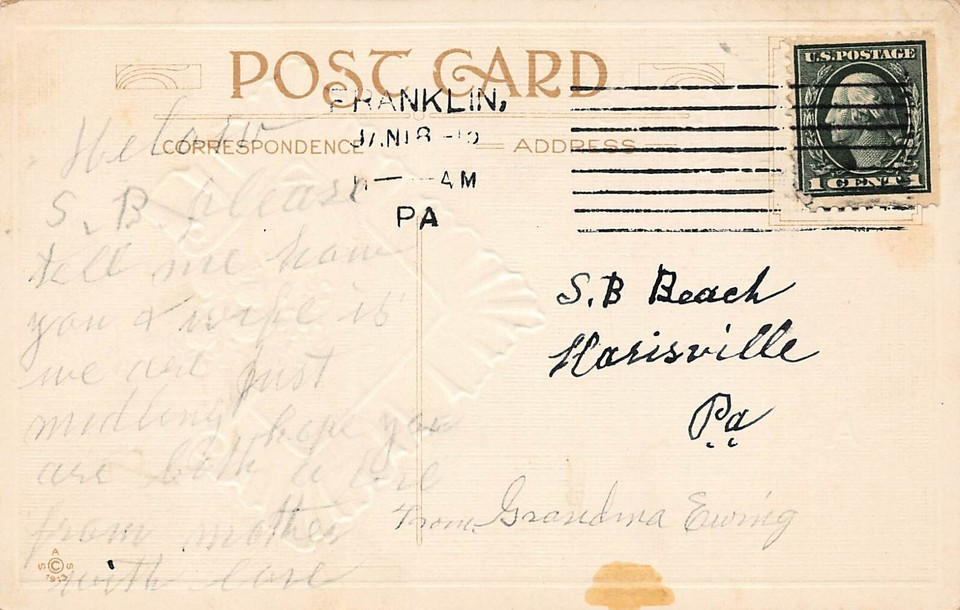 POST CARD
U.S.POSTAGE
FRANKLIN,
JAN 18
CORRESPONDENCE
ADDRESS
AM
PA
1 CENT 1
S. B please
tell me how
you & wife is
we are just
midling hope you
are both a
from mother
with love
S.B Beach
Harisville
Pa
From Grandma Ewing
A
S © S